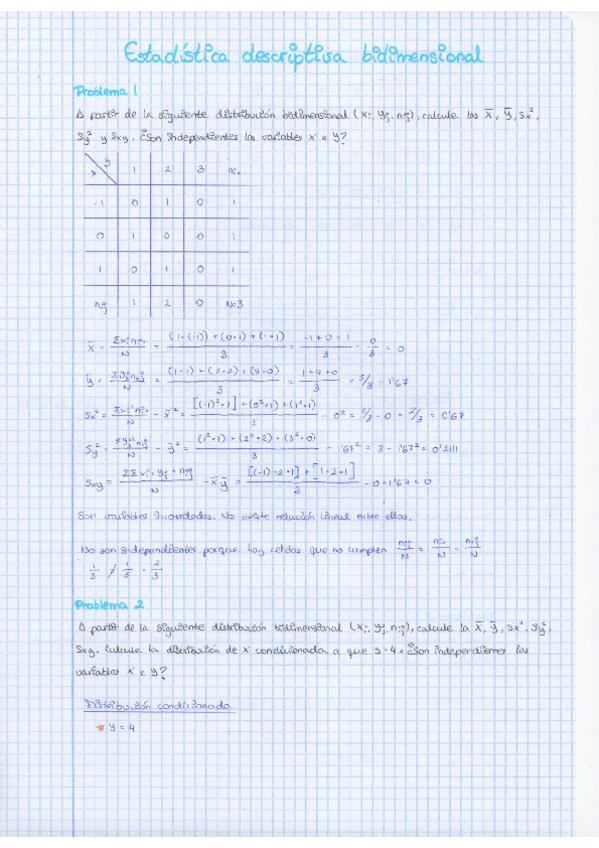 Estadística descriptiva bidimensional
Problema 1
A partir de la siguiente distribución bidimensional (xi, yj, nij), calcule las x̄, ȳ, Sx²,
Sy² y Sxy. ¿Son independientes las variables X e Y?
x y 1 2 3 ni.
-1 0 1 0 1
0 1 0 0 1
1 0 1 0 1
n.j 1 2 0 N=3
x̄ = Σxi ni. / N = (1·(-1)) + (0·1) + (1·1) / 3 = -1+0+1 / 3 = 0/3 = 0
ȳ = Σyj n.j / N = (1·1) + (2·2) + (3·0) / 3 = 1+4+0 / 3 = 5/3 = 1'67
Sx² = Σxi² ni. / N - x̄² = [(-1)²·1] + (0²·1) + (1²·1) / 3 - 0² = 2/3 - 0 = 2/3 = 0'67
Sy² = Σyj² n.j / N - ȳ² = (1²·1) + (2²·2) + (3²·0) / 3 - 1'67² = 3 - 1'67² =
Sxy = ΣΣ xi · yj · nij / N - x̄ȳ = [(-1)·2·1] + [1·2·1] / 3 - 0·1'67 = 0
Son variables incorreladas. No existe relación lineal entre ellas.
No son independientes porque hay celdas que no cumplen nij/N = ni./N · n.j/N
1/3 ≠ 1/3 · 2/3
Problema 2
A partir de la siguiente distribución bidimensional (xi, yj, nij), calcule la x̄, ȳ, Sx², Sy²,
Sxy. Calcule la distribución de x condicionada a que 4. ¿Son independientes las
variables X e Y?
Distribución condicionada
* y = 4